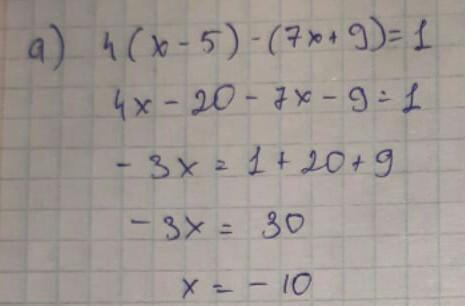 a) 4(x-5)-(7x+9)=1
4x-20-7x-9=1
-3x=1+20+9
-3x=30
x=-10